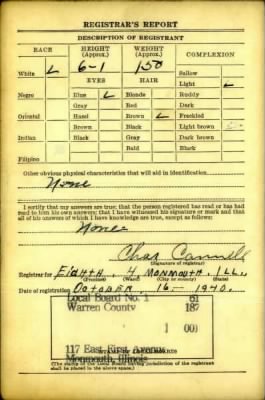 REGISTRAR'S REPORT
DESCRIPTION OF REGISTRANT
RACE HEIGHT (Approx.) WEIGHT (Approx.) COMPLEXION
White 6-1 150 Sallow
EYES HAIR Light
Negro Blue Blonde Ruddy
Gray Red Dark
Oriental Hazel Brown Freckled
Brown Black Light brown
Indian Black Gray Dark brown
Bald Black
Filipino
Other obvious physical characteristics that will aid in identification
None
I certify that my answers are true; that the person registered has read or has had read to him his own answers; that I have witnessed his signature or mark and that all of his answers of which I have knowledge are true, except as follows:
None
Chas
(Signature of registrar)
Registrar for EIGHTH 4 MONMOUTH, ILL.
(Precinct) (Ward) (City or county) (State)
Date of registration OCTOBER 16 - 1940.
Local Board No. 1 61
Warren County 187
1 001
117 East First Avenue
Monmouth, Illinois
(The stamp of the Local Board having jurisdiction of the registrant
shall be placed in the above space.)